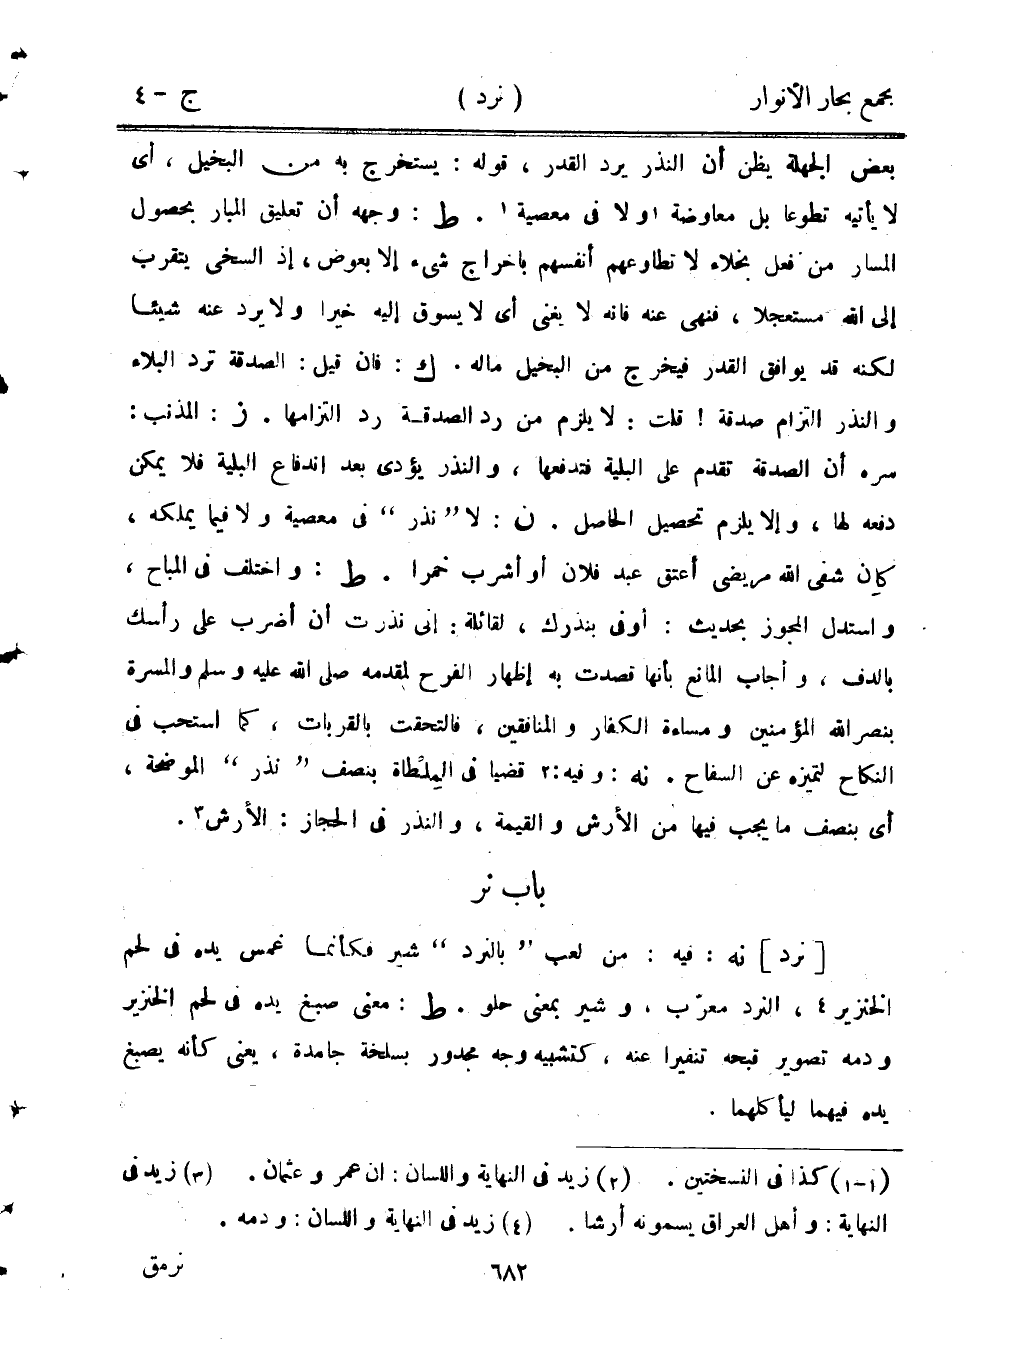 مجمع بحار الأنوار ( نرد ) ج - ٤
بعض الجهلة يظن أن النذر يرد القدر ، قوله : يستخرج به من البخيل ، أى
لا يأتيه تطوعا بل معاوضة ١و لا فى معصية ١ . ط : وجهه أن تعليق المبار بحصول
المسار من فعل بخلاء لا تطاوعهم أنفسهم باخراج شىء إلا بعوض ، إذ السخى يتقرب
إلى الله مستعجلا ، فنهى عنه فانه لا يغنى أى لا يسوق إليه خيرا و لا يرد عنه شيئا
لكنه قد يوافق القدر فيخرج من البخيل ماله . ك : فان قيل : الصدقة ترد البلاء
و النذر التزام صدقة ! قلت : لا يلزم من رد الصدقة رد التزامها . ز : المذنب :
سره أن الصدقة تقدم على البلية فتدفعها ، و النذر يؤدى بعد اندفاع البلية فلا يمكن
دفعه لها ، و إلا يلزم تحصيل الحاصل . ن : لا ” نذر “ فى معصية و لا فيما يملكه ،
كان شفى الله مريضى أعتق عبد فلان أو أشرب خمرا . ط : و اختلف فى المباح ،
و استدل المجوز بحديث : أوفى بنذرك ، لقائلة : إنى نذرت أن أضرب على رأسك
بالدف ، و أجاب المانع بأنها قصدت به إظهار الفرح لمقدمه صلى الله عليه و سلم و المسرة
بنصر الله المؤمنين و مساءة الكفار و المنافقين ، فالتحقت بالقربات ، كما استحب فى
النكاح لتميزه عن السفاح . نه : و فيه :٢ قضيا فى الملطاة بنصف ” نذر “ الموضحة ،
أى بنصف ما يجب فيها من الأرش و القيمة ، و النذر فى الحجاز : الأرش٣ .
باب نر
[ نرد ] نه : فيه : من لعب ” بالنرد “ شير فكأنما غمس يده فى لحم
الخنزير ٤ ، النرد معرّب ، و شير بمعنى حلو . ط : معنى صبغ يده فى لحم الخنزير
و دمه تصوير قبحه تنفيرا عنه ، كتشبيه وجه مجدور بسلخة جامدة ، يعنى كأنه يصبغ
يده فيهما ليأكلهما .
(١-١) كذا فى النسختين . (٢) زيد فى النهاية و اللسان : ان عمر و عثمان . (٣) زيد فى
النهاية : و أهل العراق يسمونه أرشا . (٤) زيد فى النهاية و اللسان : و دمه .
٦٨٢ نرمق